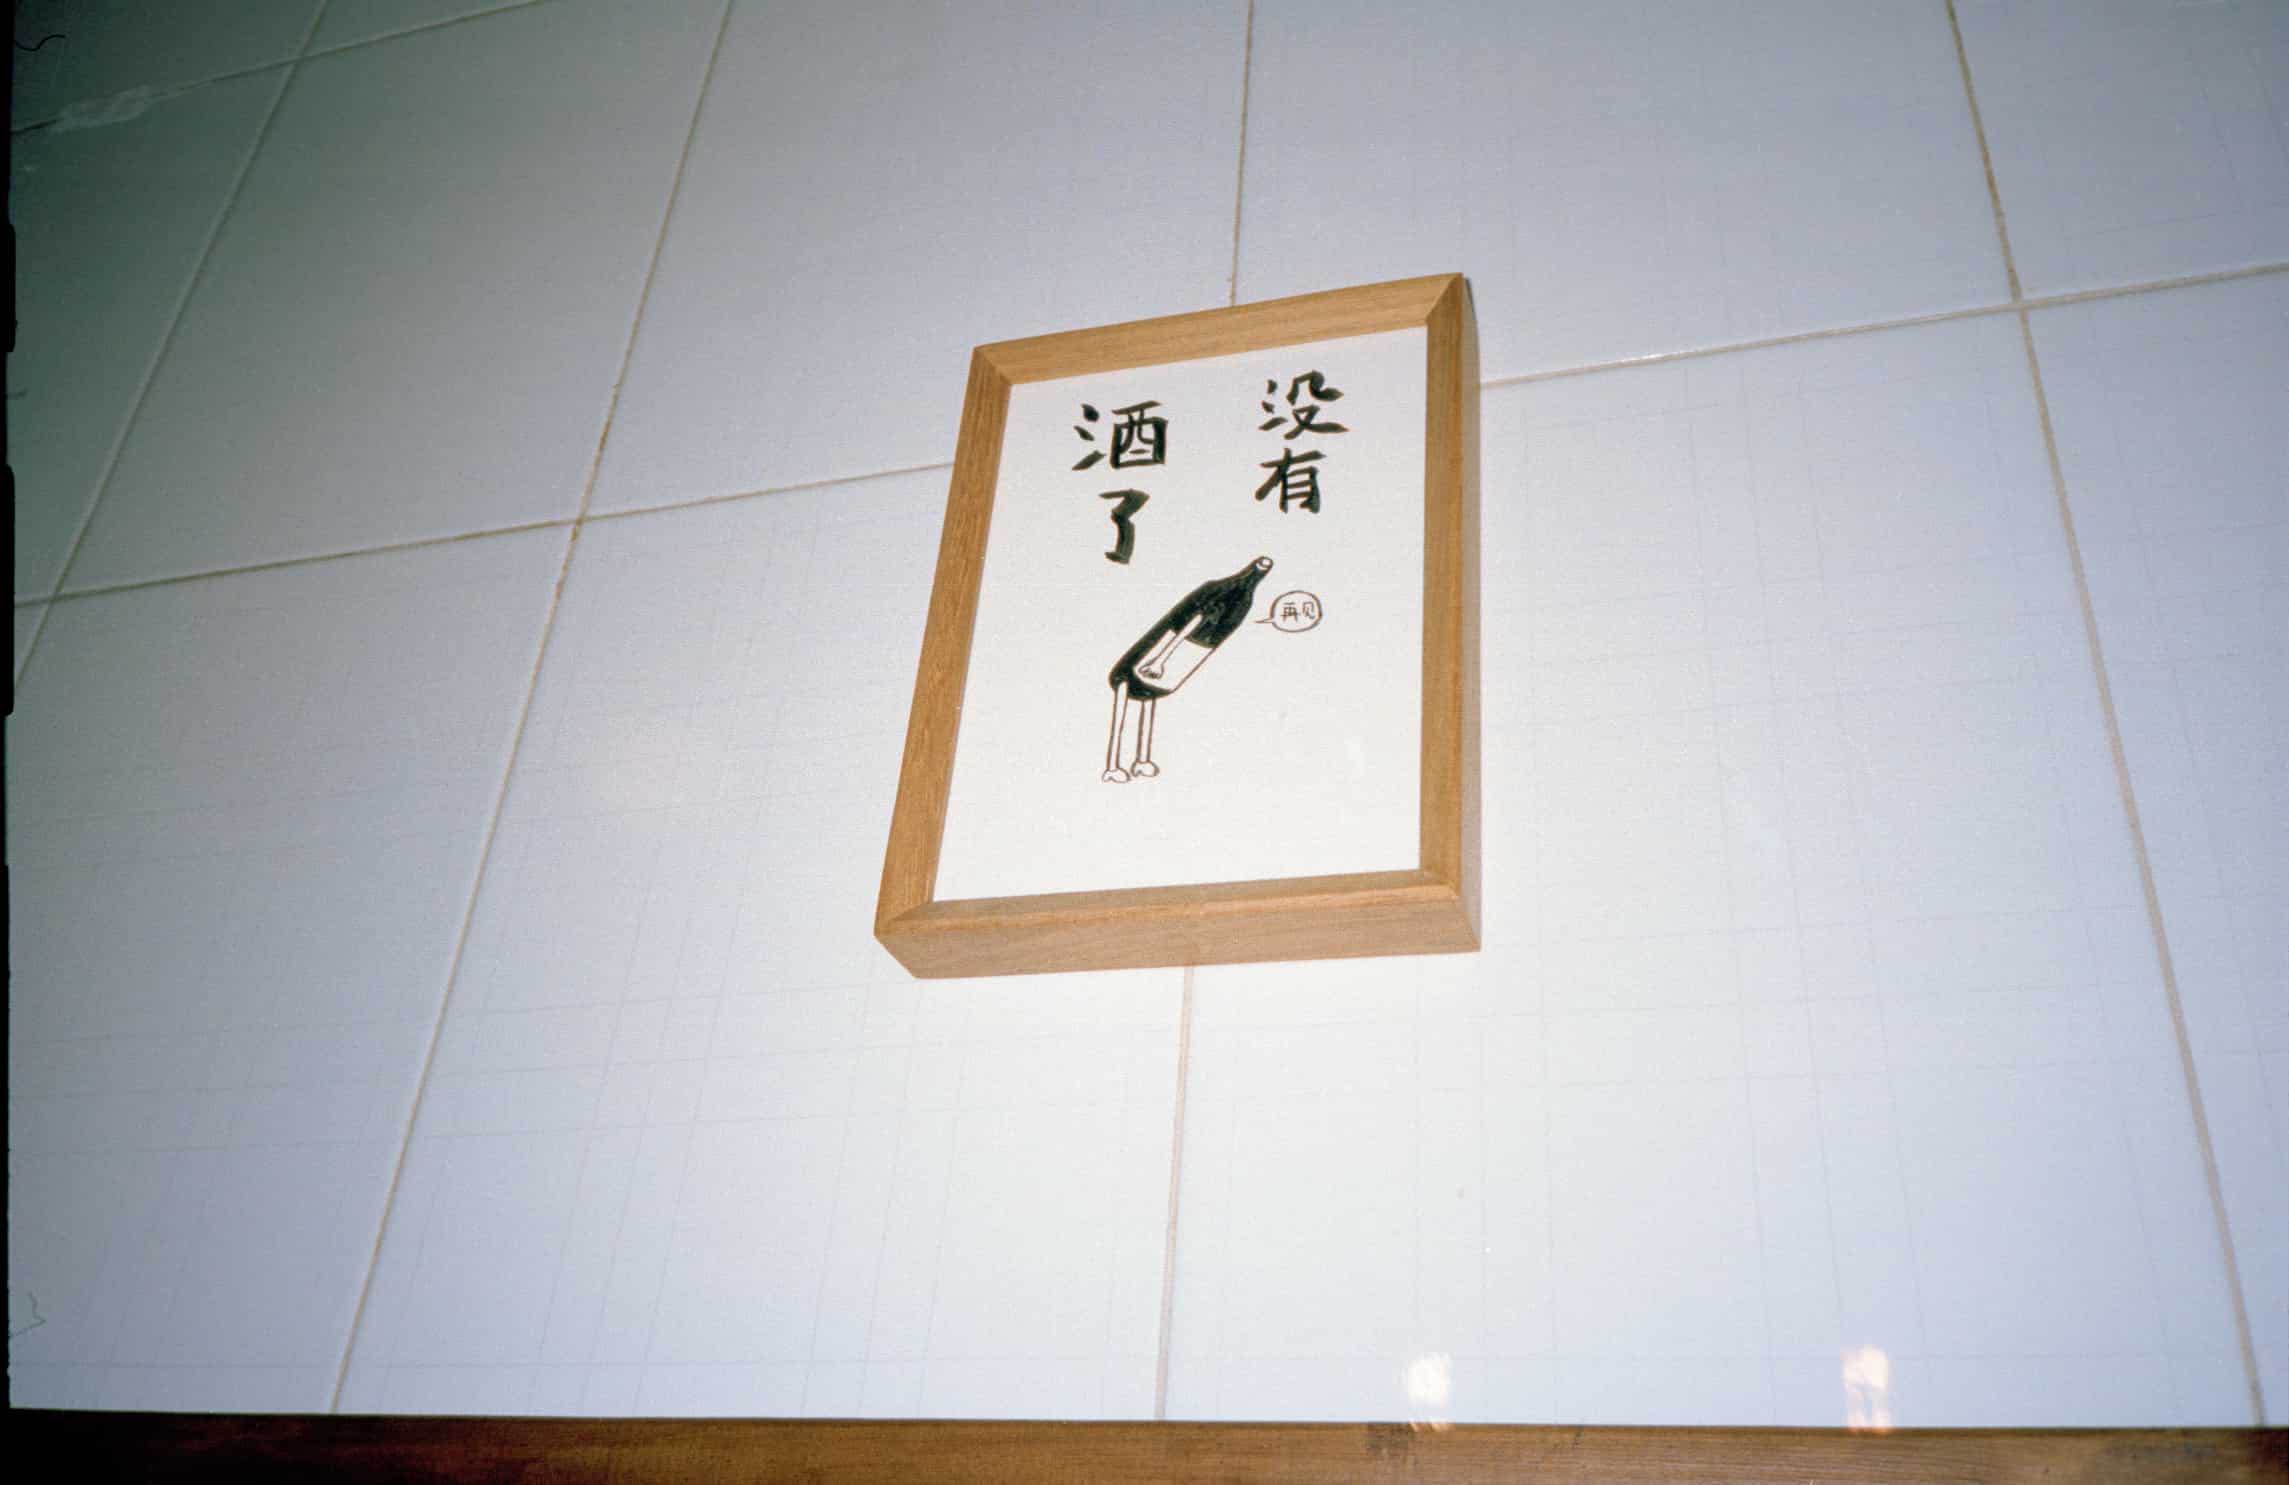 没有
酒了
再见